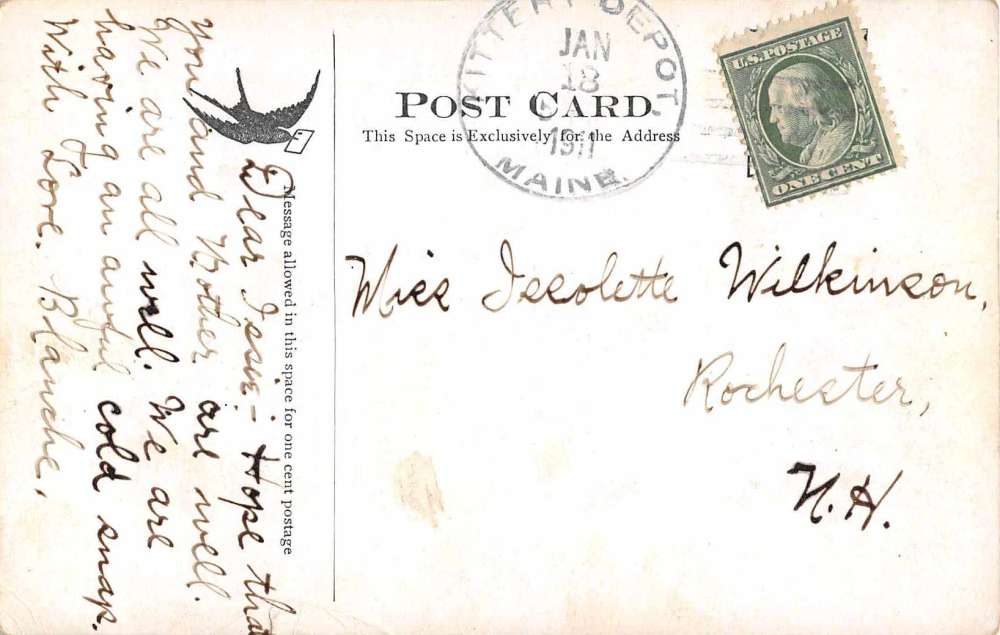 POST CARD.
This Space is Exclusively for the Address
KITTERY DEPOT.
JAN
18
1911
MAINE.
U.S. POSTAGE
ONE CENT
Message allowed in this space for one cent postage
Dear Issie:- Hope that
you and Mother are well.
We are all well. We are
having an awful cold snap.
With Love. Blanche.
Miss Isolette Wilkinson,
Rochester,
N.H.